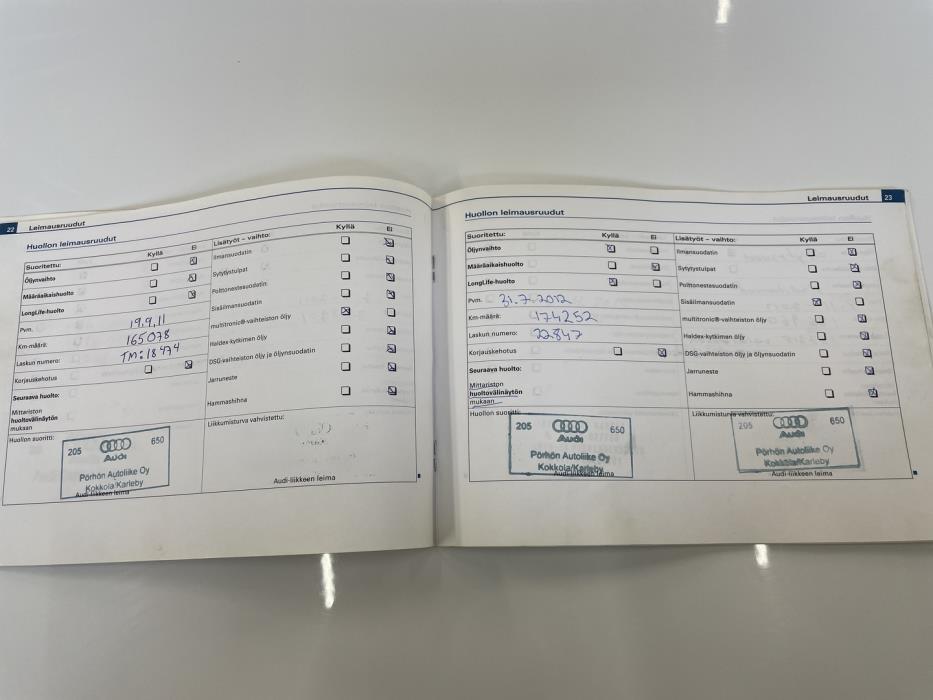 22 Leimausruudut
Huollon leimausruudut
Suoritettu: Kyllä Ei
Öljynvaihto
Määräaikaishuolto
LongLife-huolto
Pvm. 19.9.11
Km-määrä: 165078
Laskun numero: TM:18474
Korjauskehotus
Seuraava huolto:
Mittariston
huoltovälinäytön
mukaan
Huollon suoritti:
205 650
Audi
Pörhön Autoliike Oy
Kokkola/Karleby
Audi-liikkeen leima
Lisätyöt – vaihto: Kyllä Ei
Ilmansuodatin
Sytytystulpat
Polttonestesuodatin
Sisäilmansuodatin
multitronic®-vaihteiston öljy
Haldex-kytkimen öljy
DSG-vaihteiston öljy ja öljynsuodatin
Jarruneste
Hammashihna
Liikkumisturva vahvistettu:
Audi-liikkeen leima
Leimausruudut 23
Huollon leimausruudut
Suoritettu: Kyllä Ei
Öljynvaihto
Määräaikaishuolto
LongLife-huolto
Pvm. 31.7.2012
Km-määrä: 174252
Laskun numero: 22847
Korjauskehotus
Seuraava huolto:
Mittariston
huoltovälinäytön
mukaan
Huollon suoritti:
205 650
Audi
Pörhön Autoliike Oy
Kokkola/Karleby
Audi-liikkeen leima
Lisätyöt – vaihto: Kyllä Ei
Ilmansuodatin
Sytytystulpat
Polttonestesuodatin
Sisäilmansuodatin
multitronic®-vaihteiston öljy
Haldex-kytkimen öljy
DSG-vaihteiston öljy ja öljynsuodatin
Jarruneste
Hammashihna
Liikkumisturva vahvistettu:
205 650
Audi
Pörhön Autoliike Oy
Kokkola/Karleby
Audi-liikkeen leima